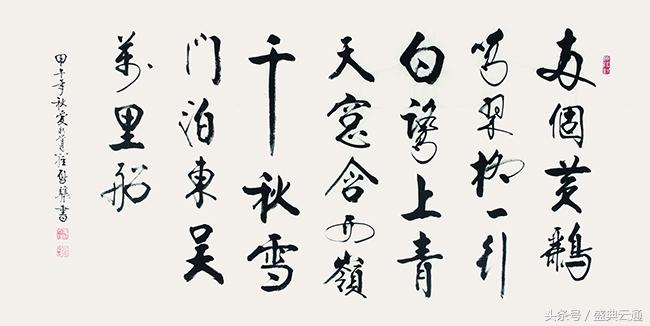 兩個黄鸝
鳴翠柳一行
白鷺上青
天窓含西嶺
千秋雪
門泊東吴
萬里船
甲午年秋 書
头条号 / 盛典云通